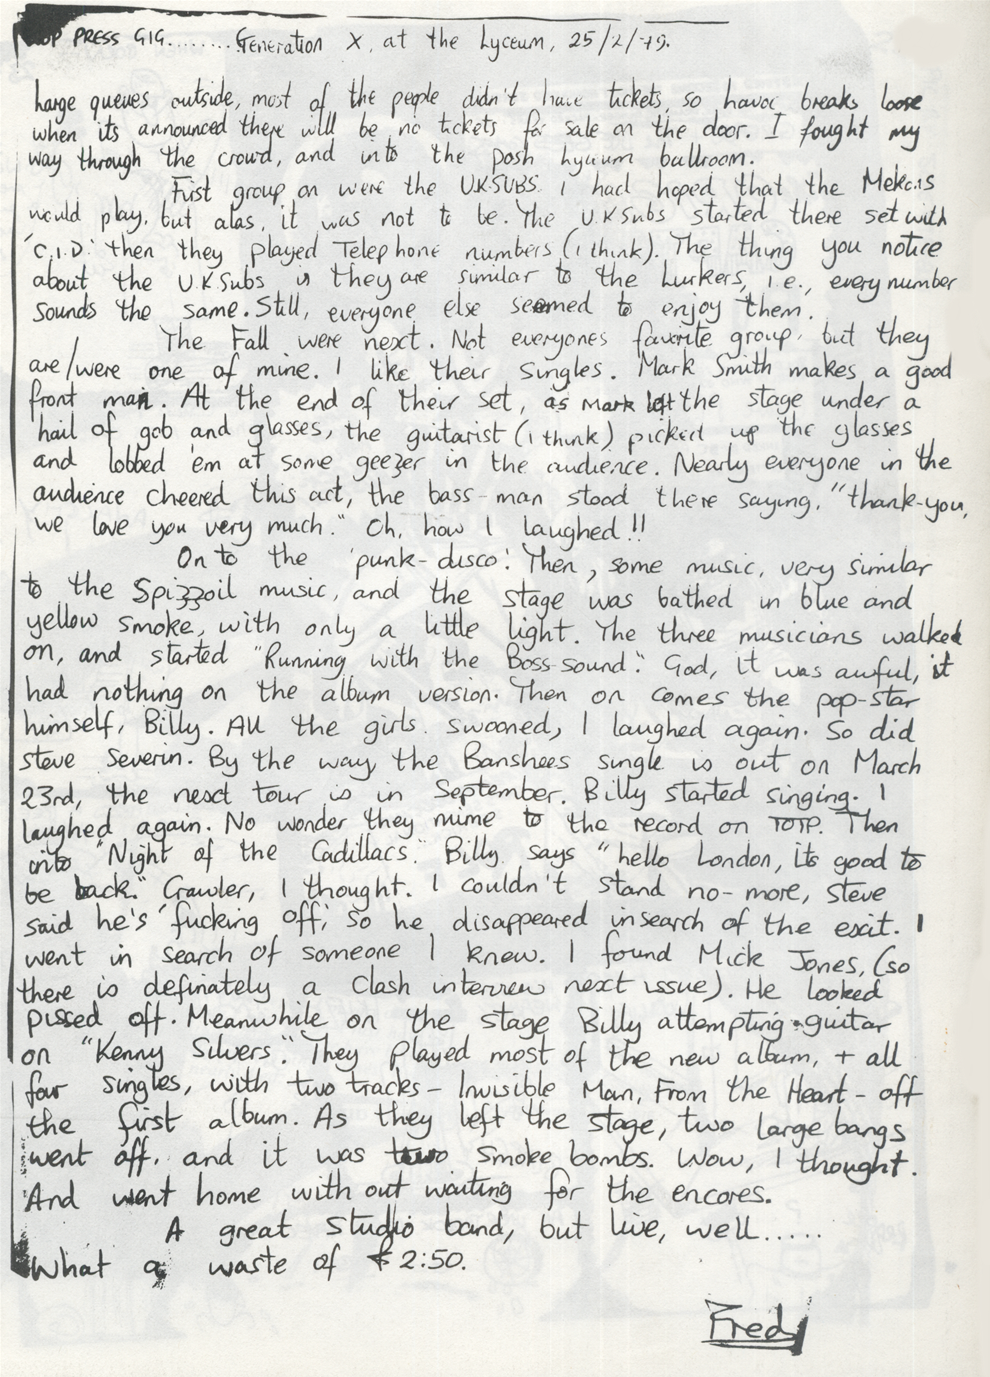 STOP PRESS GIG........Generation X, at the Lyceum, 25/2/79.
Large queues outside, most of the people didn't have tickets, so havoc breaks loose
when its announced there will be no tickets for sale on the door. I fought my
way through the crowd, and into the posh lyceum ballroom.
Fist group on were the U.K.SUBS. I had hoped that the Mekons
would play, but alas, it was not to be. The U.K Subs started there set with
'C.I.D.' then they played Telephone numbers (i think). The thing you notice
about the U.K Subs is they are similar to the Lurkers, i.e., every number
sounds the same. Still, everyone else seemed to enjoy them.
The Fall were next. Not everyones favorite group, but they
are/were one of mine. I like their singles. Mark Smith makes a good
front man. At the end of their set, as Mark left the stage under a
hail of gob and glasses, the guitarist (i think) picked up the glasses
and lobbed 'em at some geezer in the audience. Nearly everyone in the
audience cheered this act, the bass-man stood there saying, "thank-you,
we love you very much." Oh, how I laughed!!
On to the 'punk-disco'. Then, some music, very similar
to the Spizzoil music, and the stage was bathed in blue and
yellow smoke, with only a little light. The three musicians walked
on, and started "Running with the Boss-sound". God, it was awful, it
had nothing on the album version. Then on comes the pop-star
himself, Billy. All the girls swooned, I laughed again. So did
steve Severin. By the way, the Banshees single is out on March
23rd, the next tour is in September. Billy started singing. I
laughed again. No wonder they mime to the record on TOTP. Then
into "Night of the Cadillacs." Billy says "hello London, its good to
be back." Crawler, I thought. I couldn't stand no-more, steve
said he's 'fucking off', so he disappeared insearch of the exit. I
went in search of someone I knew. I found Mick Jones, (so
there is definately a Clash interview next issue). He looked
pissed off. Meanwhile on the stage Billy attempting guitar
on "Kenny Silvers". They played most of the new album, + all
four singles, with two tracks - Invisible Man, From the Heart - off
the first album. As they left the stage, two large bangs
went off, and it was two smoke bombs. Wow, I thought.
And went home with out waiting for the encores.
A great studio band, but live, well.....
What a waste of £2:50.
Fred